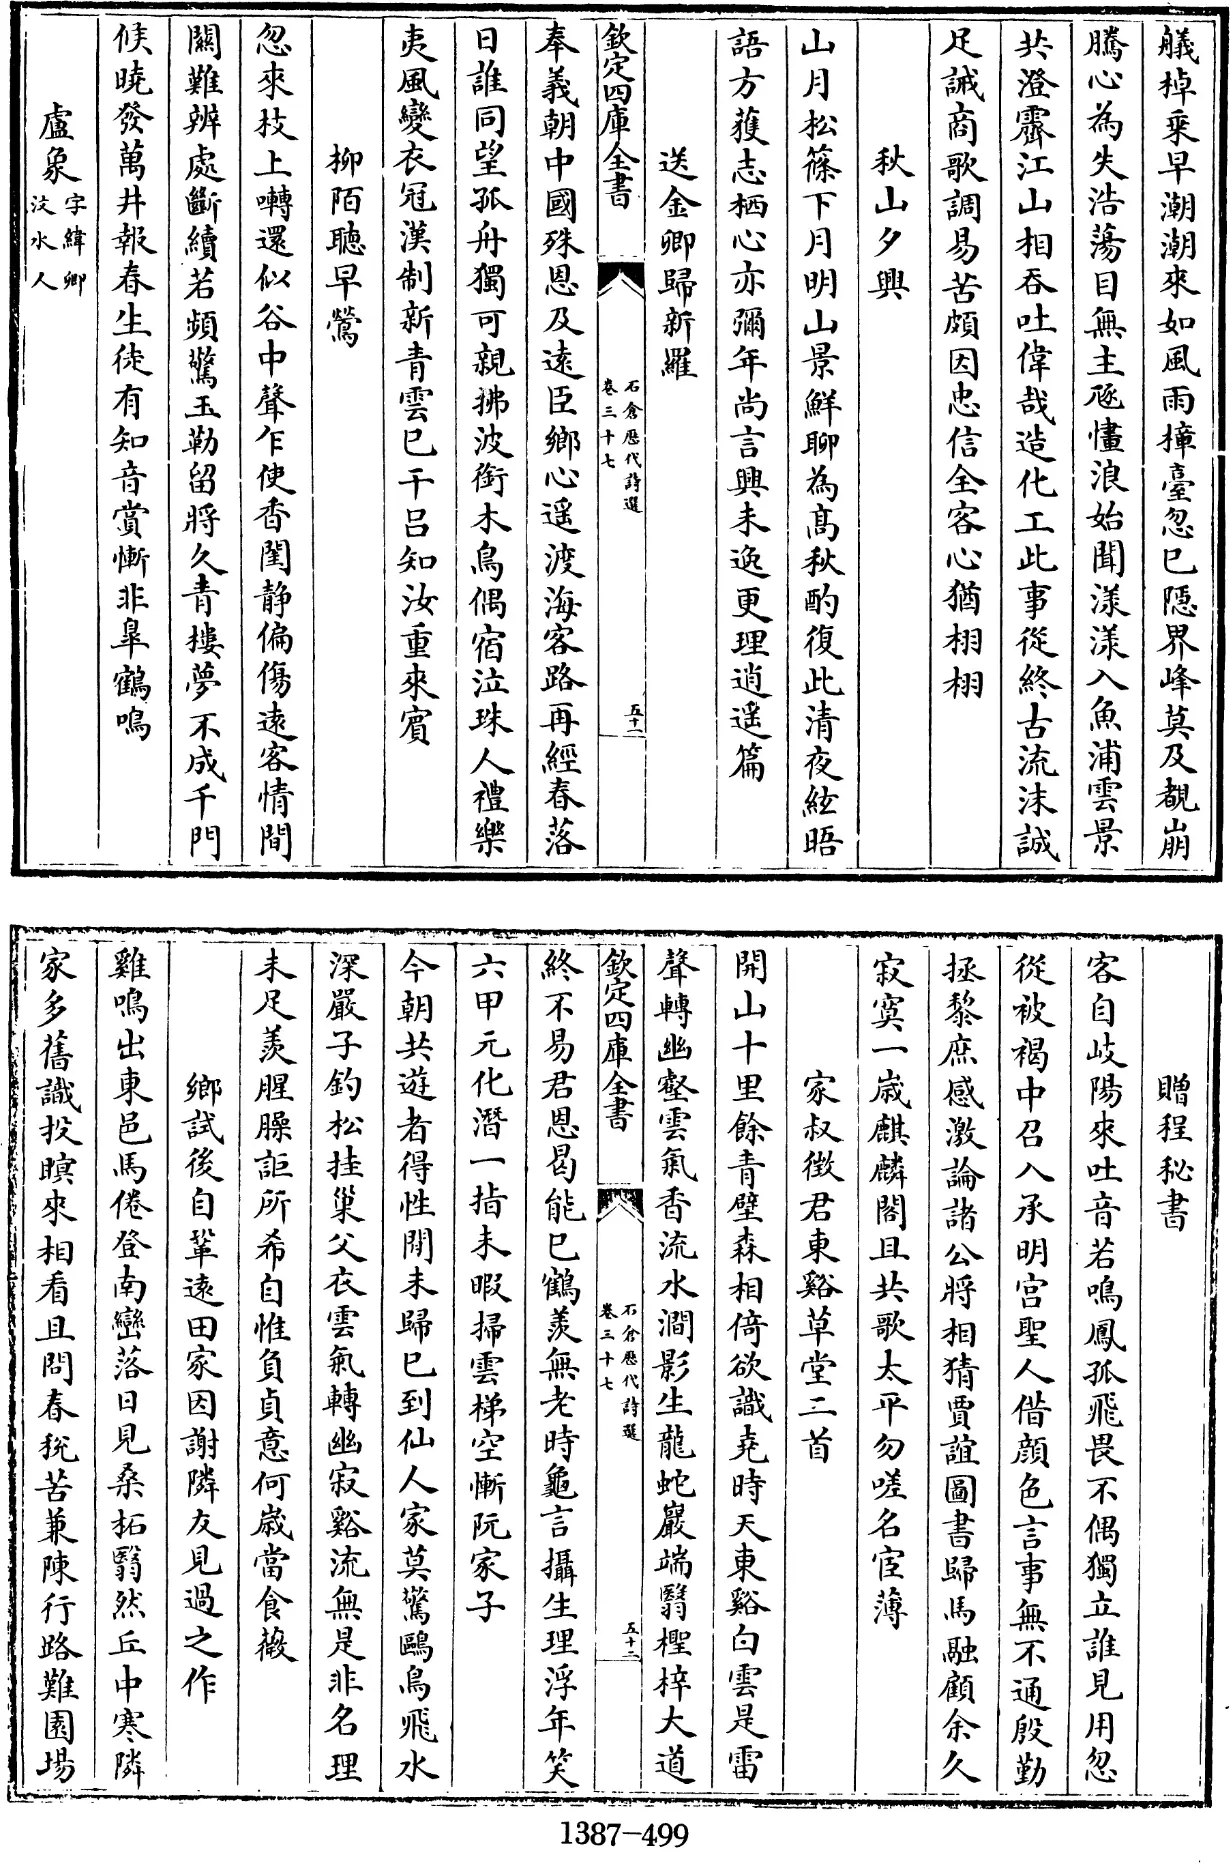 艤棹乘早潮潮來如風雨樟臺忽已隱界峰莫及覩崩
騰心為失浩蕩目無主豗㦎浪始聞漾漾入魚浦雲景
共澄霽江山相吞吐偉哉造化工此事從終古流沫誠
足誡商歌調易苦頗因忠信全客心猶栩栩
秋山夕興
山月松篠下月明山景鮮聊為髙秋酌復此清夜絃晤
語方獲志栖心亦彌年尚言興未逸更理逍遥篇
送金卿歸新羅
欽定四庫全書
石倉歴代詩選
卷三十七
五十一
奉義朝中國殊恩及遠臣鄉心遥渡海客路再經春落
日誰同望孤舟獨可親拂波銜木鳥偶宿泣珠人禮樂
夷風變衣冠漢制新青雲已干呂知汝重來賓
柳陌聽早鶯
忽來枝上囀還似谷中聲乍使香閨静偏傷遠客情間
關難辨處斷續若頻驚玉勒留將久青樓夢不成千門
候曉發萬井報春生徒有知音賞慚非臯鶴鳴
盧象
字緯卿
汶水人
贈程秘書
客自岐陽來吐音若鳴鳳孤飛畏不偶獨立誰見用忽
從被褐中召入承明宫聖人借顔色言事無不通殷勤
拯黎庶感激論諸公將相猜賈誼圖書歸馬融顧余久
寂寞一嵗麒麟閣且共歌太平勿嗟名宦薄
家叔徴君東谿草堂二首
開山十里餘青壁森相倚欲識堯時天東谿白雲是雷
聲轉幽壑雲氣香流水澗影生龍蛇巖端翳檉梓大道
欽定四庫全書
石倉歴代詩選
卷三十七
五十二
終不易君恩曷能已鶴羨無老時龜言攝生理浮年笑
六甲元化潛一指未暇掃雲梯空慚阮家子
今朝共遊者得性閒未歸已到仙人家莫驚鷗鳥飛水
深嚴子釣松挂巢父衣雲氣轉幽寂谿流無是非名理
未足羨腥臊詎所希自惟負貞意何嵗當食薇
鄉試後自鞏還田家因謝隣友見過之作
雞鳴出東邑馬倦登南巒落日見桑柘翳然丘中寒隣
家多舊識投暝來相看且問春税苦兼陳行路難園場
1387-499